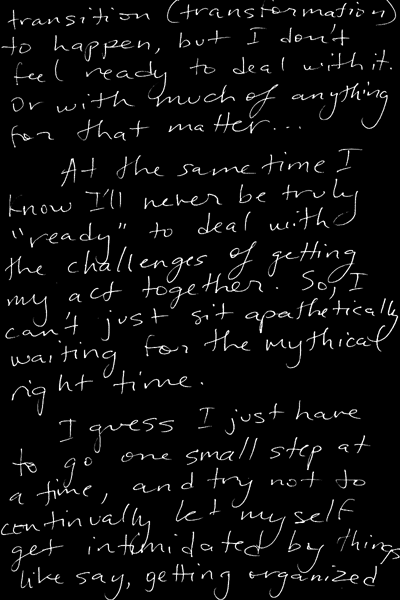 transition (transformation)
to happen, but I don't
feel ready to deal with it.
Or with much of anything
for that matter...
At the same time I
know I'll never be truly
"ready" to deal with
the challenges of getting
my act together. So, I
can't just sit apathetically
waiting for the mythical
right time.
I guess I just have
to go one small step at
a time, and try not to
continually let myself
get intimidated by things
like say, getting organized